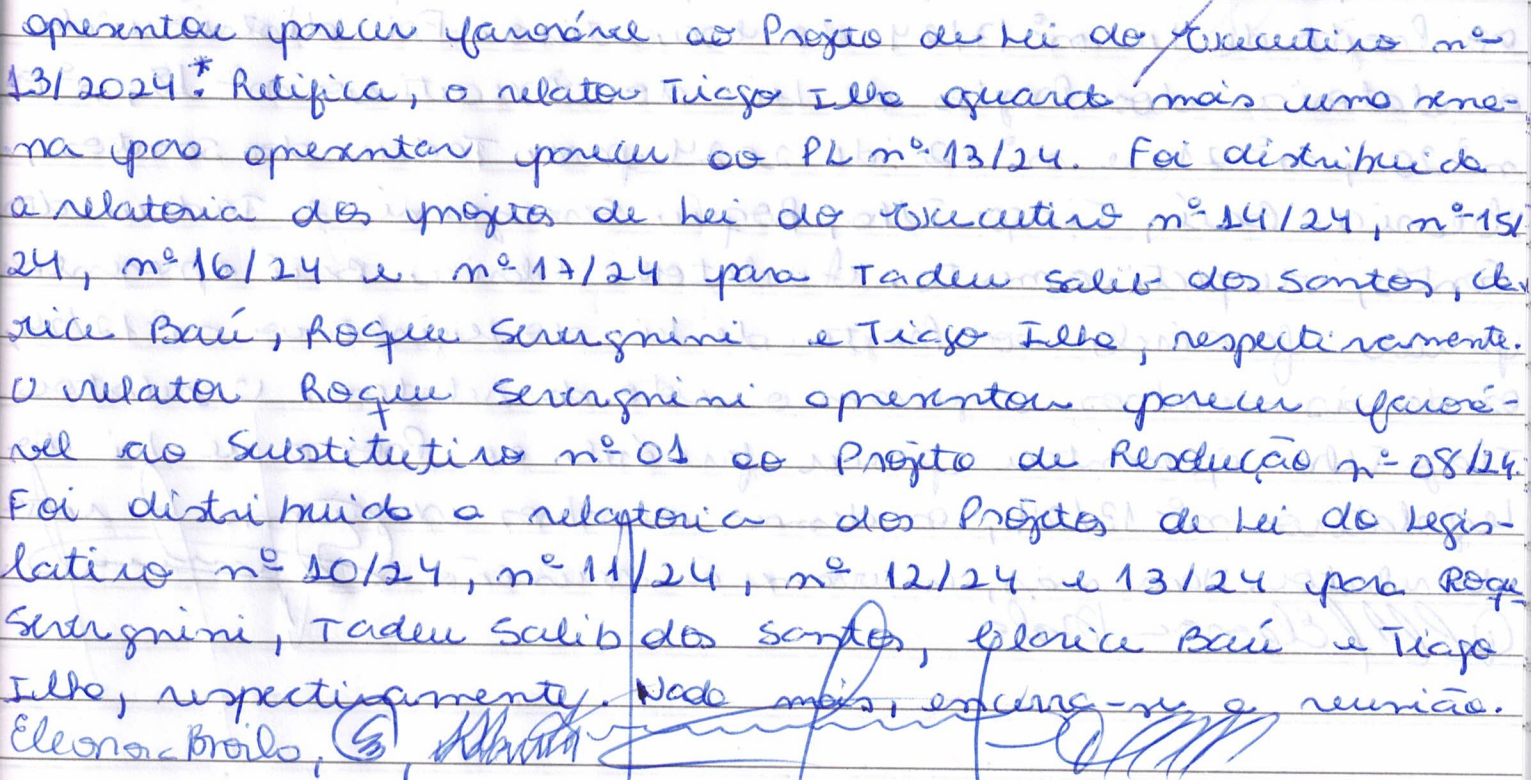 apresentou parecer favorável ao Projeto de Lei do Executivo nº
13/2024.* Retifica, o relator Tiago Ilha aguarda mais uma sema-
na para apresentar parecer ao PL nº 13/24. Foi distribuida
a relatoria dos projetos de Lei do Executivo nº 14/24, nº 15/
24, nº 16/24 e nº 17/24 para Tadeu Salib dos Santos, Cla-
rice Baú, Roque Severgnini e Tiago Ilha, respectivamente.
O relator Roque Severgnini apresentou parecer favorá-
vel ao Substitutivo nº 01 ao Projeto de Resolução nº 08/24.
Foi distribuido a relatoria dos Projetos de Lei do Legis-
lativo nº 10/24, nº 11/24, nº 12/24 e 13/24 para Roque
Severgnini, Tadeu Salib dos Santos, Clarice Baú e Tiago
Ilha, respectivamente. Nada mais, encerra-se a reunião.
Eleonora Broilo,